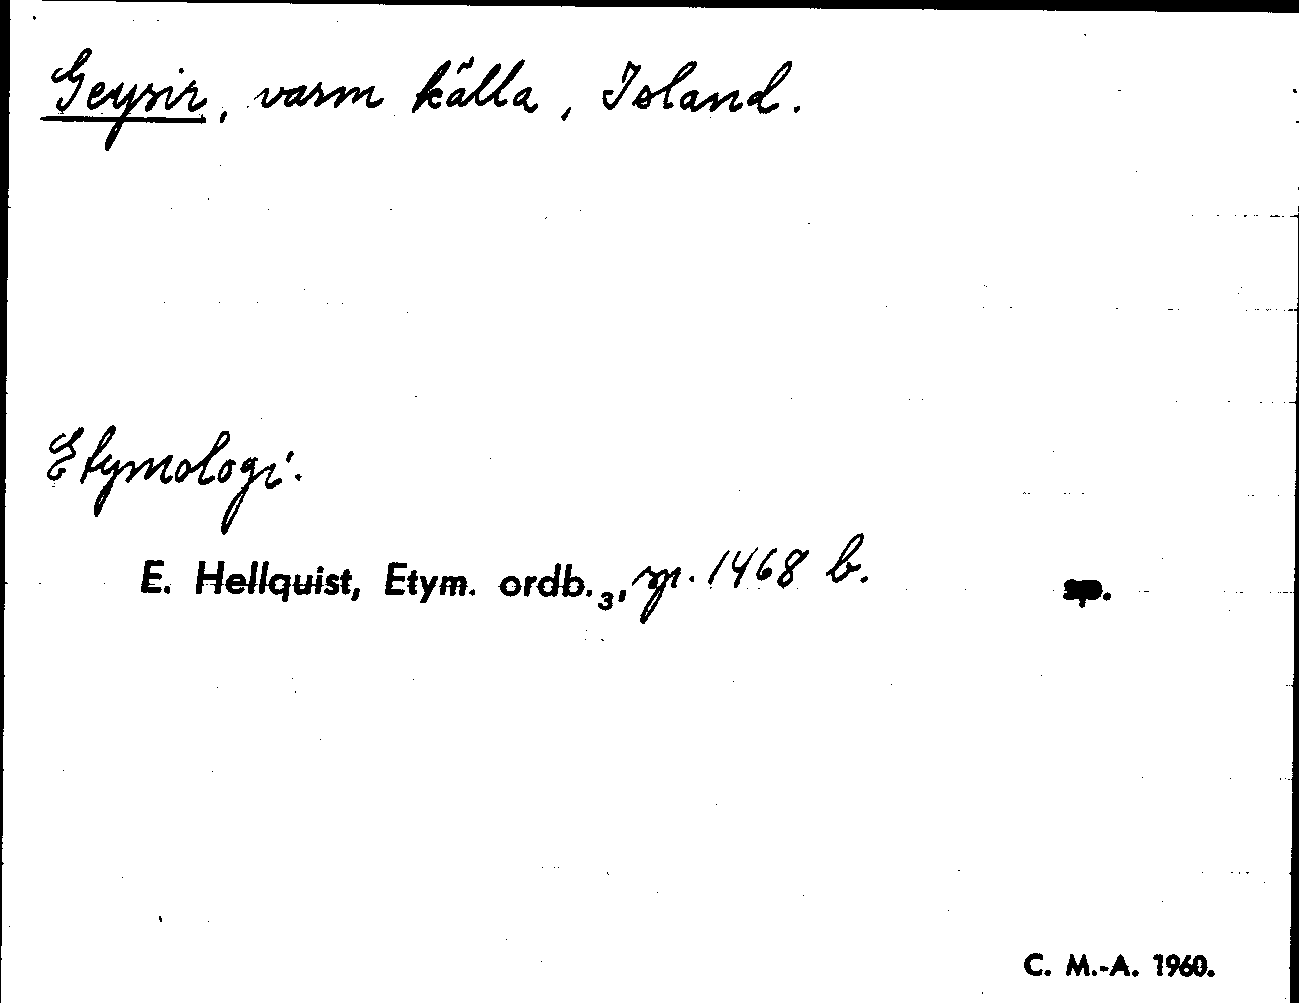 Geysir, varm källa, Island.
Etymologi.
E. Hellquist, Etym. ordb.3, sp. 1468 b. sp.
C. M.-A. 1960.